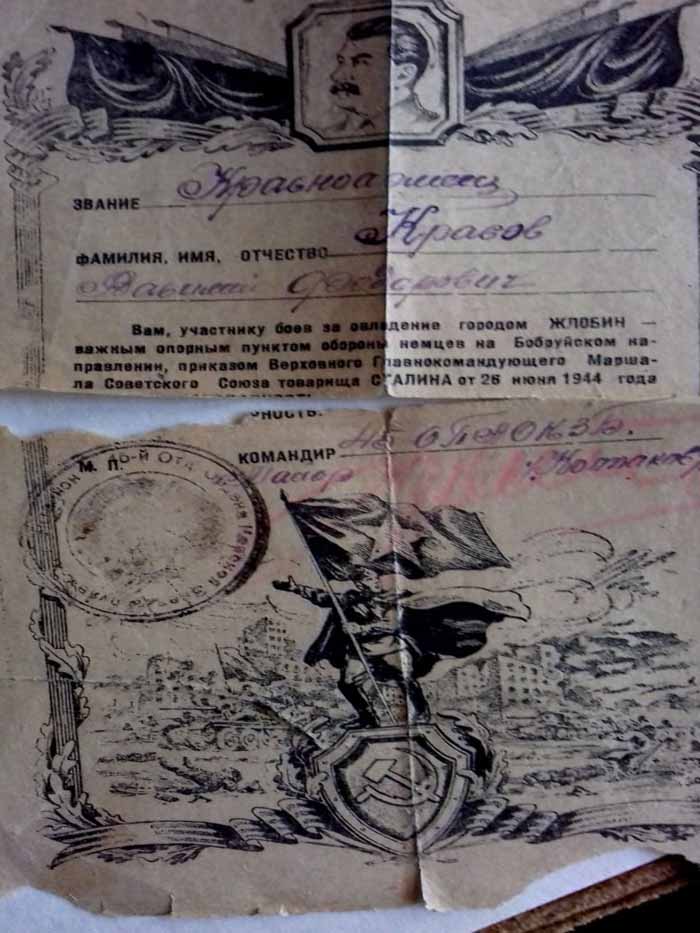 ЗВАНИЕ Красноармеец
Красов
ФАМИЛИЯ, ИМЯ, ОТЧЕСТВО
Василий Федорович
Вам, участнику боев за овладение городом ЖЛОБИН —
важным опорным пунктом обороны немцев на Бобруйском на-
правлении, приказом Верховного Главнокомандующего Марша-
ла Советского Союза товарища СТАЛИНА от 26 июня 1944 года
НОСТЬ.
КОМАНДИР
М. П.
Майор